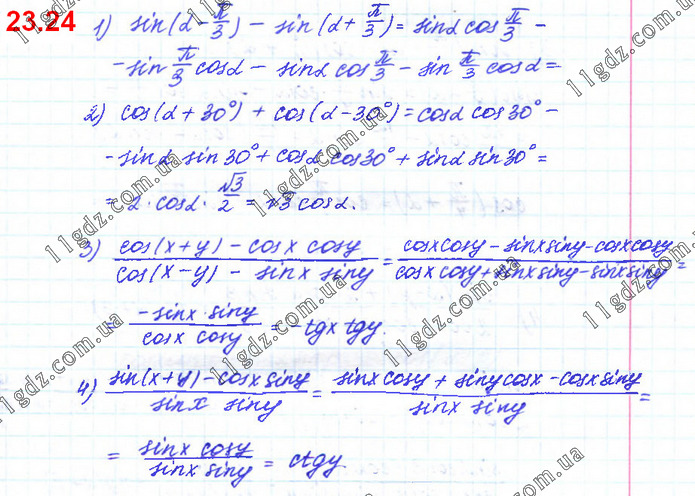 23.24
1) sin(α - π/3) - sin(α + π/3) = sinα cos π/3 -
- sin π/3 cosα - sinα cos π/3 - sin π/3 cosα =
2) cos(α + 30°) + cos(α - 30°) = cosα cos30° -
- sinα sin30° + cosα cos30° + sinα sin30° =
= 2 · cosα · √3/2 = √3 cosα.
3) (cos(x+y) - cosx cosy)/(cos(x-y) - sinx siny) = (cosxcosy - sinxsiny - cosxcosy)/(cosx cosy + sinxsiny - sinxsiny) =
= (-sinx · siny)/(cosx cosy) = -tgx tgy.
4) (sin(x+y) - cosxsiny)/(sinx siny) = (sinxcosy + sinycosx - cosxsiny)/(sinx siny) =
= (sinx cosy)/(sinx siny) = ctgy.
11gdz.com.ua
11gdz.com.ua
11gdz.com.ua
11gdz.com.ua
11gdz.com.ua
11gdz.com.ua
11gdz.com.ua
11gdz.com.ua